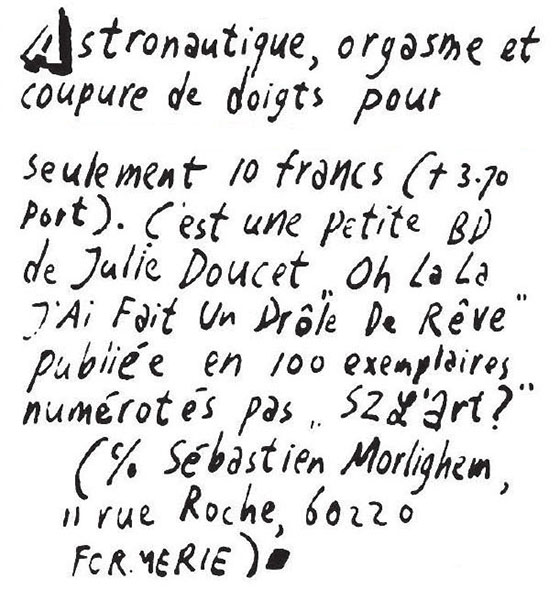 Astronautique, orgasme et
coupure de doigts pour
seulement 10 francs (+ 3.70
port). C'est une petite BD
de Julie Doucet „ Oh La La
J'Ai Fait Un Drôle De Rêve"
publiée en 100 exemplaires
numérotés pas „ SZ L'Art?"
(℅ Sébastien Morlighem,
11 rue Roche, 60220
FORMERIE)